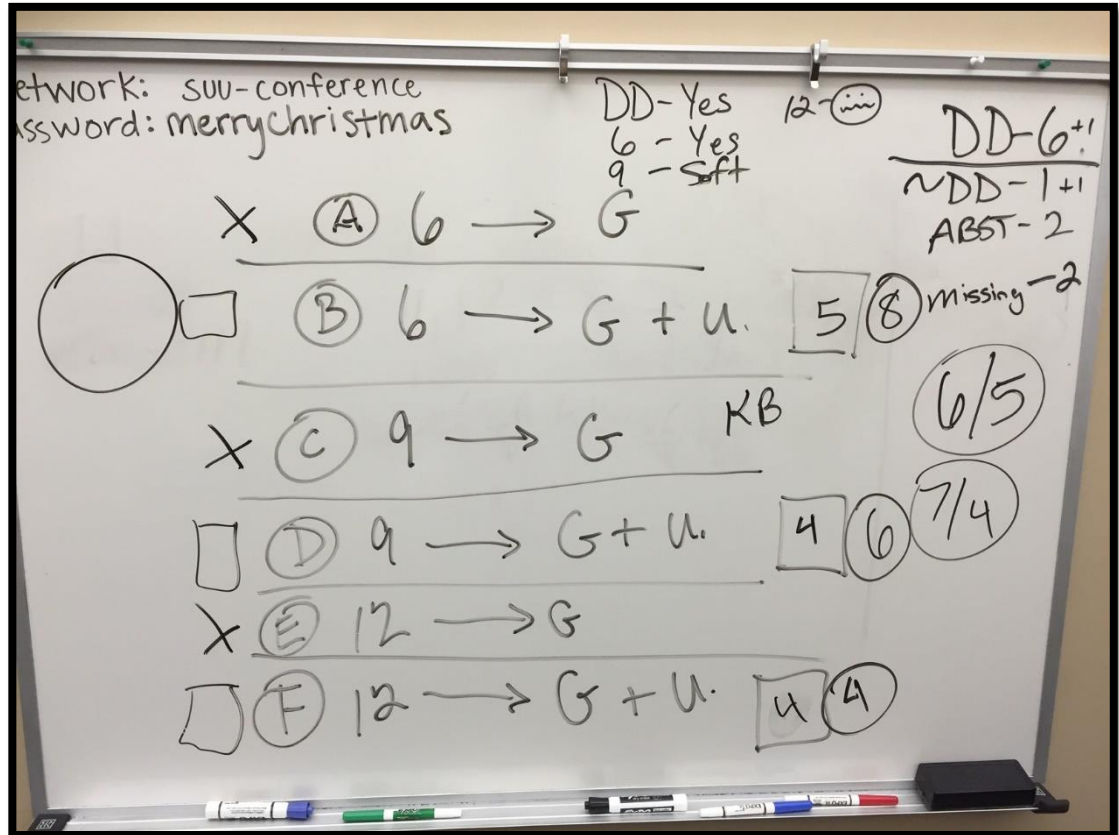 etwork: suu-conference
ssword: merrychristmas
DD - Yes
6 - Yes
9 - Soft
12 -
DD - 6 +1
~DD - 1 +1
ABST - 2
missing - 2
X A 6 → G
B 6 → G + U. 5 8
6/5
X C 9 → G KB
D 9 → G + U. 4 6
7/4
X E 12 → G
F 12 → G + U. 4 4